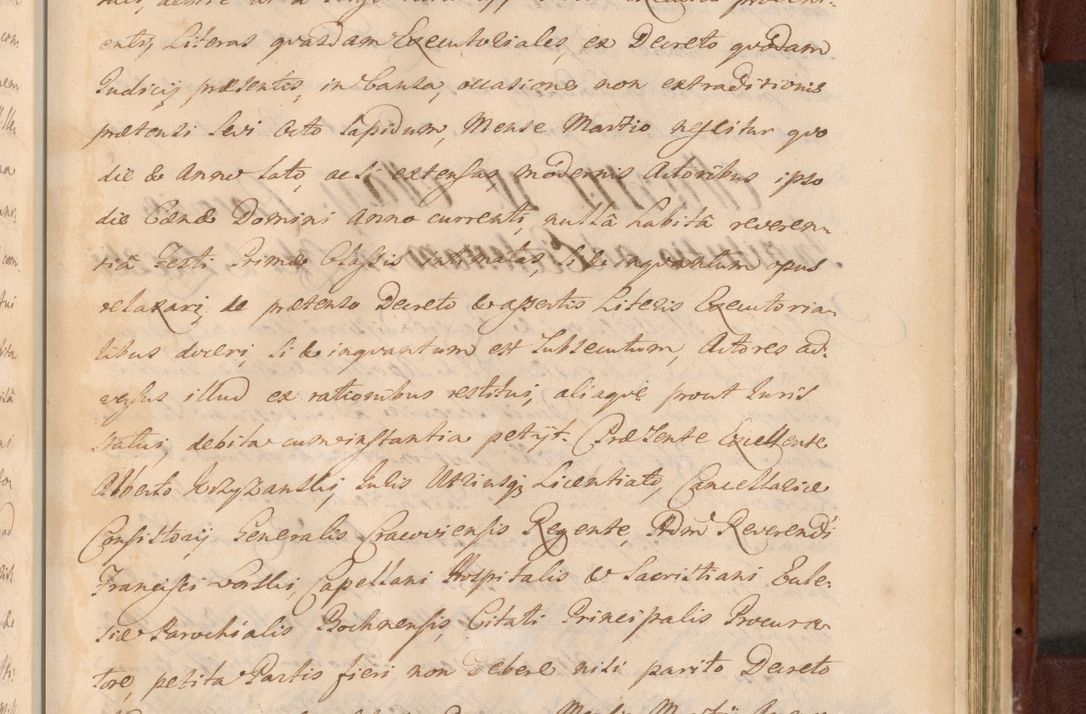 entis Literas quasdam Executoriales, ex Decreto quodam
Judicij præsentis, in Causa, occasione non extraditionis
prætensi sevi octo lapidum, Mense Martio nescitur quo
die & Anno lato, ac si extensas, modernis Actoribus ipso
die Cænæ Domini Anno currenti, nullâ habitâ reveren-
tiâ Festi Primæ Classis intimatas, si & inquantum opus
relaxari, de prætenso Decreto & assertis Literis Executoria-
libus doceri, si & inquantum est subsecutum, Actores ad-
versus illud ex rationibus restitui, aliaque prout Juris
statui, debita cum instantia petijt. Præsente Excellente
Alberto Krzyżanski, Juris Utriusq; Licentiato, Cancellariæ
Consistorij Generalis Cracoviensis Regente, Adm. Reverendi
Francisci Worski, Capellani Hospitalis & Sacristiani Eccle-
siæ Parochialis Bochnensis, Citati Principalis Procura-
tore, petita Partis fieri non debere nisi parito Decreto